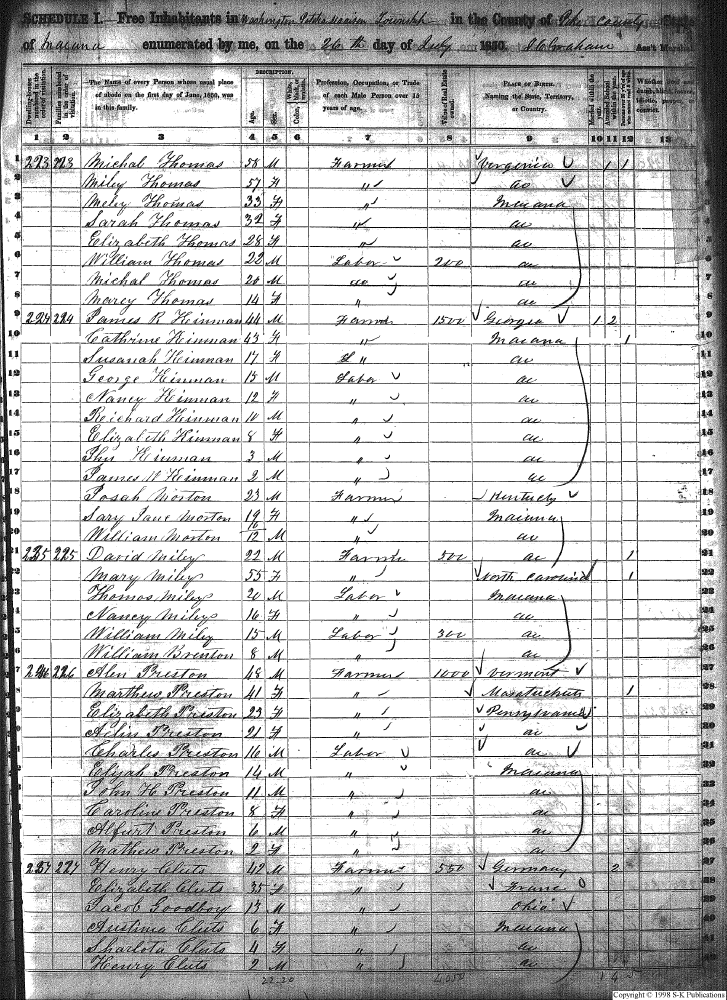 SCHEDULE I. Free Inhabitants in Washington Township in the County of Pike County State
of Indiana enumerated by me, on the 26th day of July 1850. Ass't Marshal
DESCRIPTION.
The Name of every Person whose usual place of abode on the first day of June, 1850, was in this family.
Age. Sex. Color,
Profession, Occupation, or Trade of each Male Person over 15 years of age.
Value of Real Estate owned.
PLACE OF BIRTH. Naming the State, Territory, or Country.
1 2 3 4 5 6 7 8 9 10 11 12 13
1 223 223 Michal Thomas 58 M Farmer Verginia 1 1
2 Miley Thomas 57 F " do
3 Meley Thomas 33 F " Indiana
4 Sarah Thomas 32 F " do
5 Elizabeth Thomas 28 F " do
6 William Thomas 22 M Labor 200 do
7 Michal Thomas 20 M do do
8 Marey Thomas 14 F " do
9 224 224 James R Hinman 44 M Farmer 1500 Georgia 1 2
10 Cathrine Hinman 43 F " Indiana 1
11 Susanah Hinman 17 F " do
12 George Hinman 15 M Labor do
13 Nancy Hinman 12 F " do
14 Reichard Hinman 10 M " do
15 Elizabeth Hinman 8 F " do
16 Jhn Hinman 3 M " do
17 James W Hinman 2 M " do
18 Josah Morton 23 M Farmer Kentucky
19 Sary Jane Morton 19 F " Indiana
20 William Morton 10/12 M " do
21 225 225 David Miley 22 M Farmer 500 do 1
22 Mary Miley 55 F " North Carolina 1
23 Thomas Miley 20 M Labor Indiana
24 Nancy Miley 16 F " do
25 William Miley 15 M Labor 300 do
26 William Brenton 8 M " do
27 226 226 Alen Preston 48 M Farmer 1000 Vermont
28 Marthew Preston 41 F " Masatuchuts 1
29 Elizabeth Preston 23 F " Pennsylvania
30 Ailin Preston 21 F " do
31 Charles Preston 16 M Labor do
32 Elijah Preston 14 M " Indiana
33 John H Preston 11 M " do
34 Caroline Preston 8 F " do
35 Alfurt Preston 6 M " do
36 Mathew Preston 2 F " do
37 227 227 Henry Cluts 42 M Farmer 550 Germany 2
38 Elizabeth Cluts 35 F " France
39 Jacob Goodboy 13 M " Ohio
40 Austinia Cluts 6 F " Indiana
41 Sharlota Cluts 4 F " do
42 Henry Cluts 2 M " do
22-20 4050 1 4 5
Copyright © 1998 S-K Publications